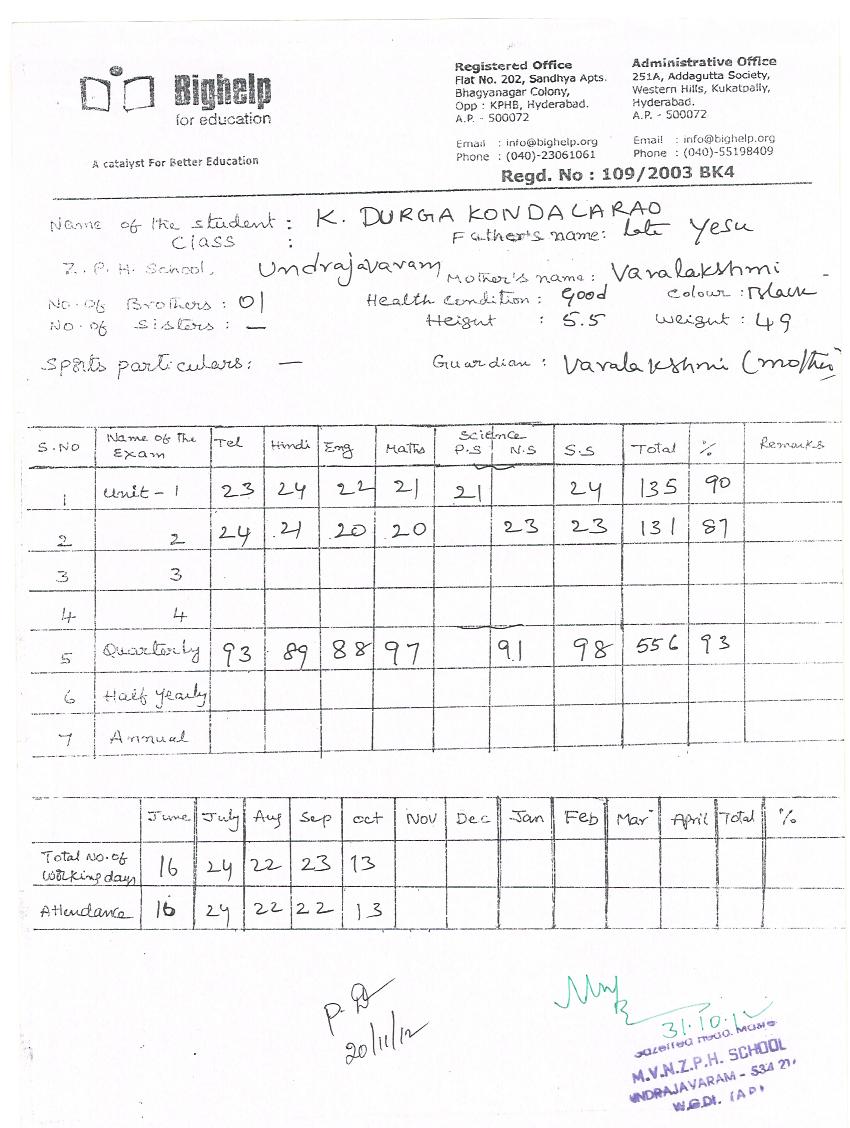 Bighelp
for education
A catalyst For Better Education
Registered Office
Flat No. 202, Sandhya Apts.
Bhagyanagar Colony,
Opp : KPHB, Hyderabad.
A.P. - 500072
Email : info@bighelp.org
Phone : (040)-23061061
Administrative Office
251A, Addagutta Society,
Western Hills, Kukatpally,
Hyderabad.
A.P. - 500072
Email : info@bighelp.org
Phone : (040)-55198409
Regd. No : 109/2003 BK4
Name of the student : K. DURGA KONDALARAO
Class : Father's name: late Yesu
Z.P.H. School, Undrajavaram Mother's name : Varalakshmi
No. of Brothers : 01 Health condition : Good Colour : Black
No. of Sisters : — Height : 5.5 Weight : 49
Sports particulars: — Guardian : Varalakshmi (mother)
S.NO Name of the Exam Tel Hindi Eng Maths Science P.S N.S S.S Total % Remarks
1 Unit - 1 23 24 22 21 21 24 135 90
2 2 24 21 20 20 23 23 131 87
3 3
4 4
5 Quarterly 93 89 88 97 91 98 556 93
6 Half yearly
7 Annual
June July Aug Sep Oct Nov Dec Jan Feb Mar April Total %
Total No. of working days 16 24 22 23 13
Attendance 16 24 22 22 13
20/11/12
31.10.12
M.V.N.Z.P.H. SCHOOL
UNDRAJAVARAM - 534 21
W.G.Dt. (A.P)